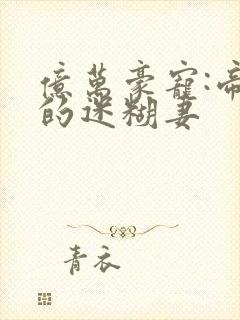 億萬豪寵:帝
的迷糊妻
青衣